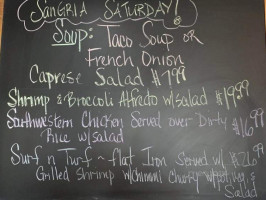 SANGRIA SATURDAY!
Soup: Taco Soup OR
French Onion
Caprese Salad $7.99
Shrimp & Broccoli Alfredo w/salad $19.99
Southwestern Chicken Served over Dirty $16.99
Rice w/salad
Surf n Turf ~ flat Iron Served w/ $26.99
Grilled Shrimp w/chimmi Churry w/pot, veg, &
Salad